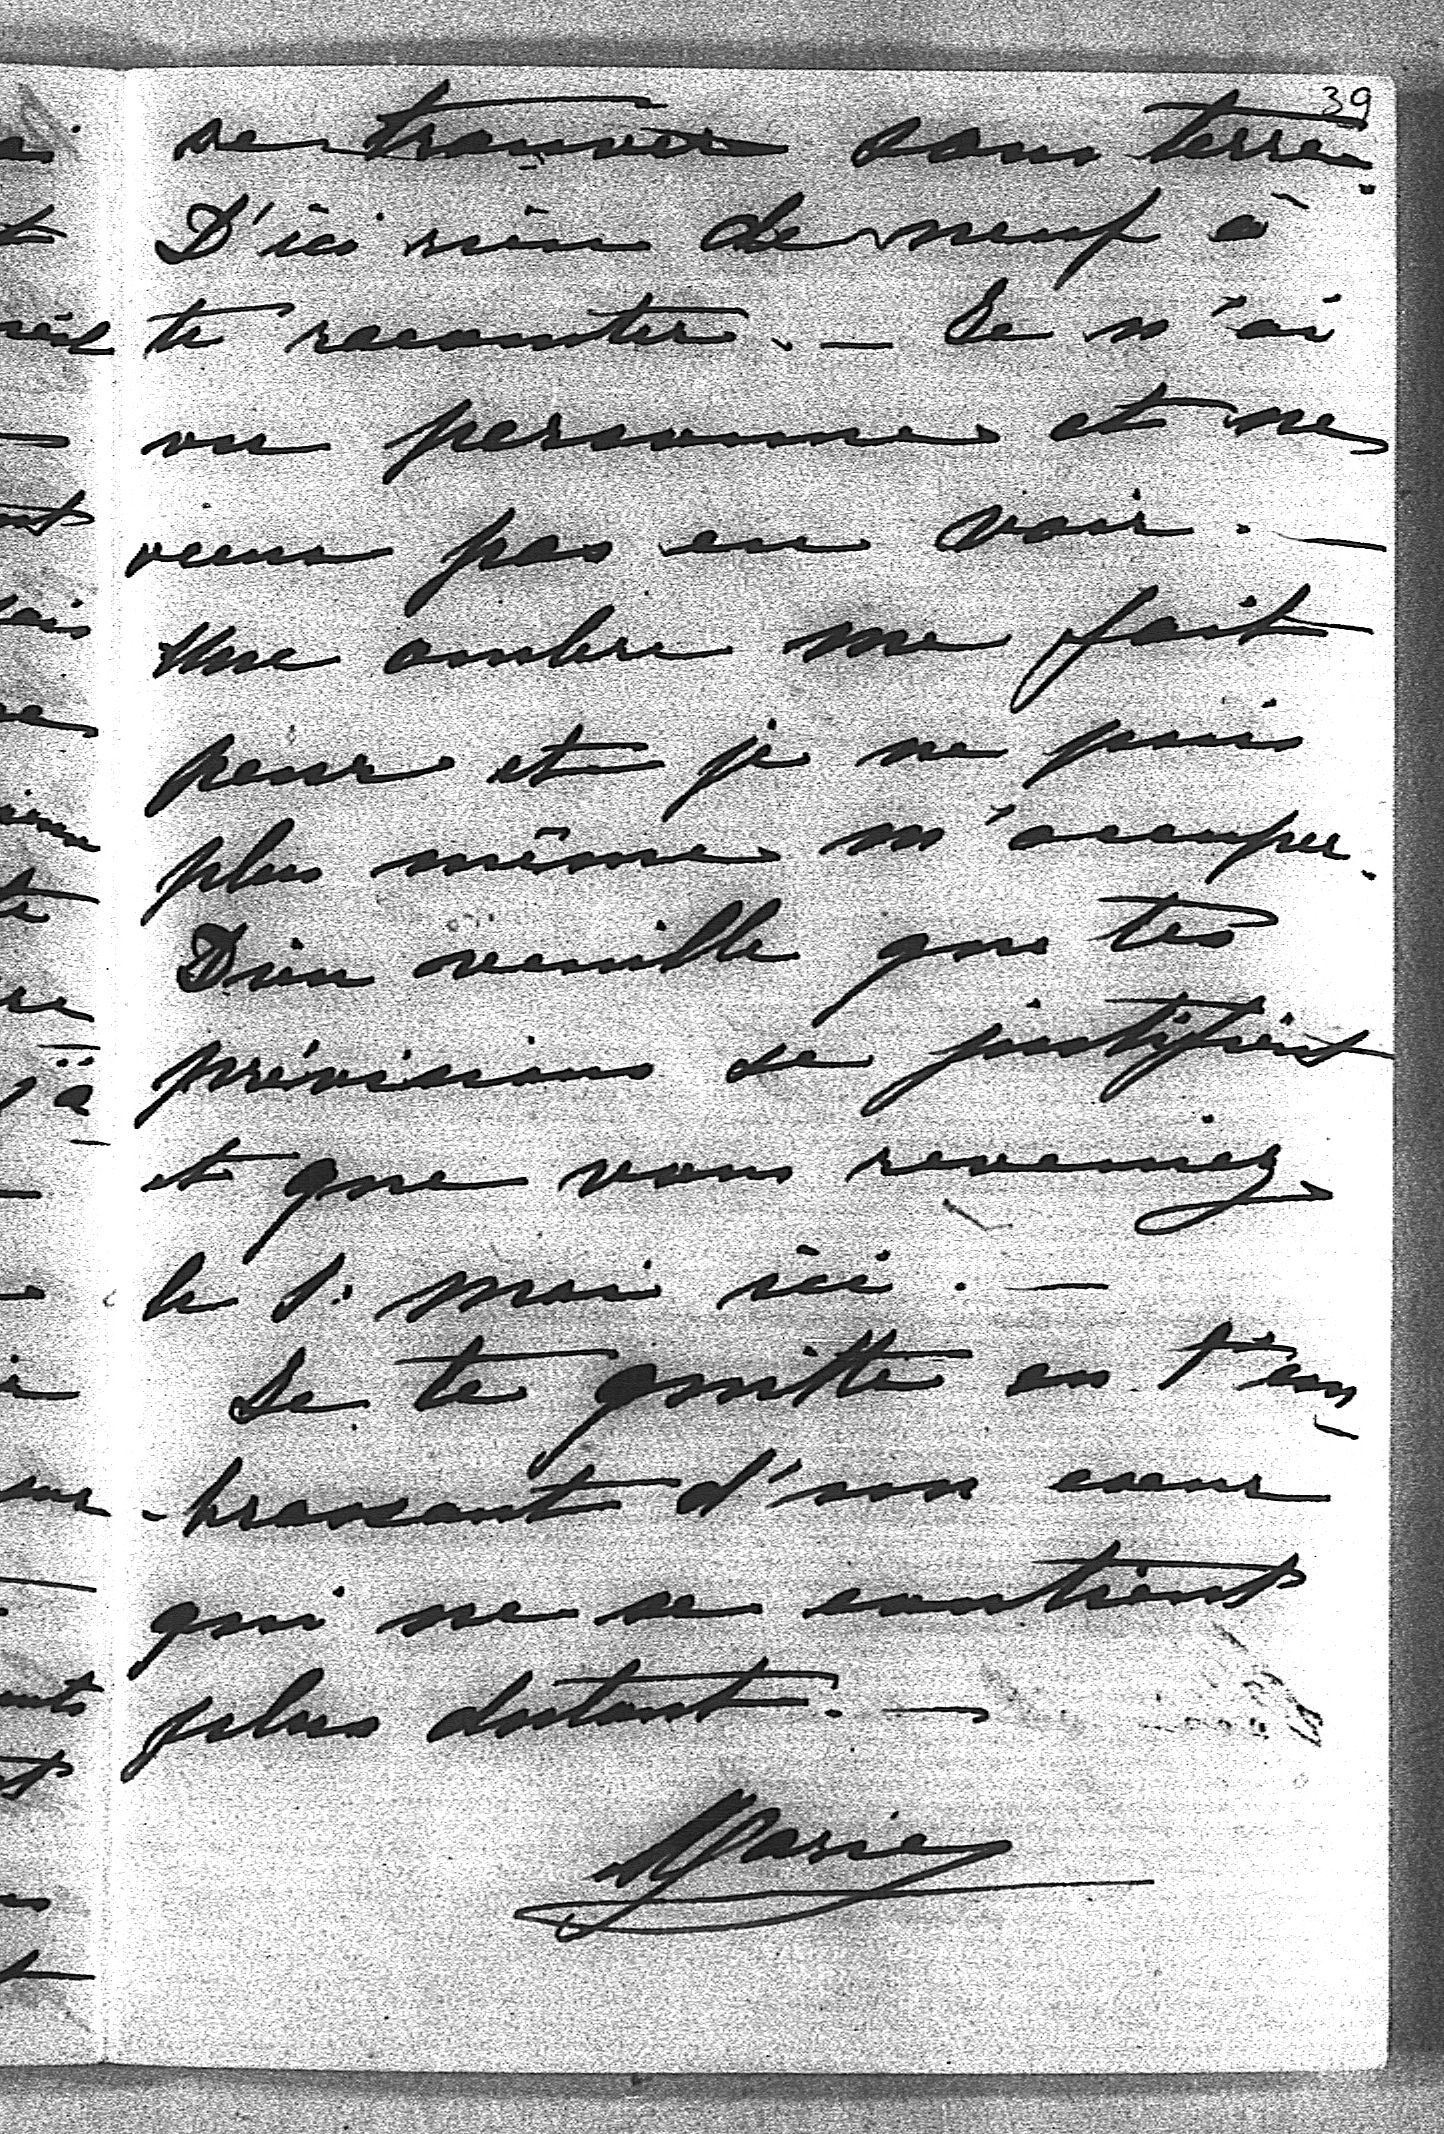 39
se trouver sans terre.
D'ici rien de neuf à
te raconter. — Je n'ai
vu personne et ne
veux pas en voir. —
Une ombre me fait
peur et je ne puis
plus même m'occuper.
Dieu veuille que tes
prévisions se justifient
et que vous reveniez
le 1. mai ici. —
Je te quitte en t'em-
-brassant d'un coeur
qui ne se contient
plus d'autant. —
Marie